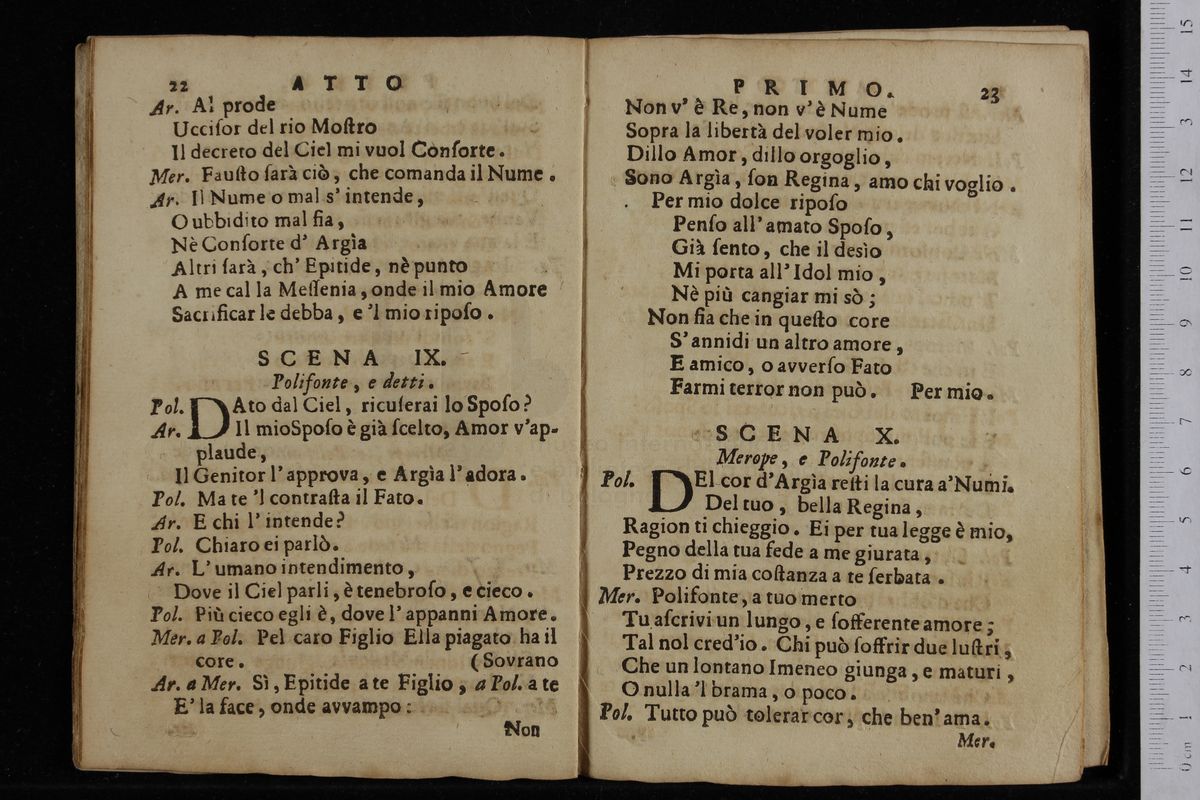 22 ATTO
Ar. Al prode
Uccisor del rio Mostro
Il decreto del Ciel mi vuol Consorte.
Mer. Fausto sarà ciò, che comanda il Nume.
Ar. Il Nume o mal s' intende,
O ubbidito mal fia,
Nè Consorte d' Argìa
Altri sarà, ch' Epitide, nè punto
A me cal la Messenia, onde il mio Amore
Sacrificar le debba, e 'l mio riposo.
SCENA IX.
Polifonte, e detti.
Pol. DAto dal Ciel, ricuserai lo Sposo?
Ar. Il mioSposo è già scelto, Amor v'ap-
plaude,
Il Genitor l'approva, e Argìa l'adora.
Pol. Ma te 'l contrasta il Fato.
Ar. E chi l' intende?
Pol. Chiaro ei parlò.
Ar. L' umano intendimento,
Dove il Ciel parli, è tenebroso, e cieco.
Pol. Più cieco egli è, dove l' appanni Amore.
Mer. a Pol. Pel caro Figlio Ella piagato ha il
core. (Sovrano
Ar. a Mer. Sì, Epitide a te Figlio, a Pol. a te
E' la face, onde avvampo:
Non
PRIMO. 23
Non v' è Re, non v' è Nume
Sopra la libertà del voler mio.
Dillo Amor, dillo orgoglio,
Sono Argìa, son Regina, amo chi voglio.
Per mio dolce riposo
Penso all' amato Sposo,
Già sento, che il desìo
Mi porta all' Idol mio,
Nè più cangiar mi sò;
Non fia che in questo core
S' annidi un altro amore,
E amico, o avverso Fato
Farmi terror non può. Per mio.
SCENA X.
Merope, e Polifonte.
Pol. DEl cor d'Argìa resti la cura a'Numi.
Del tuo, bella Regina,
Ragion ti chieggio. Ei per tua legge è mio,
Pegno della tua fede a me giurata,
Prezzo di mia costanza a te serbata.
Mer. Polifonte, a tuo merto
Tu ascrivi un lungo, e sofferente amore;
Tal nol cred'io. Chi può soffrir due lustri,
Che un lontano Imeneo giunga, e maturi,
O nulla 'l brama, o poco.
Pol. Tutto può tolerar cor, che ben' ama.
Mer.